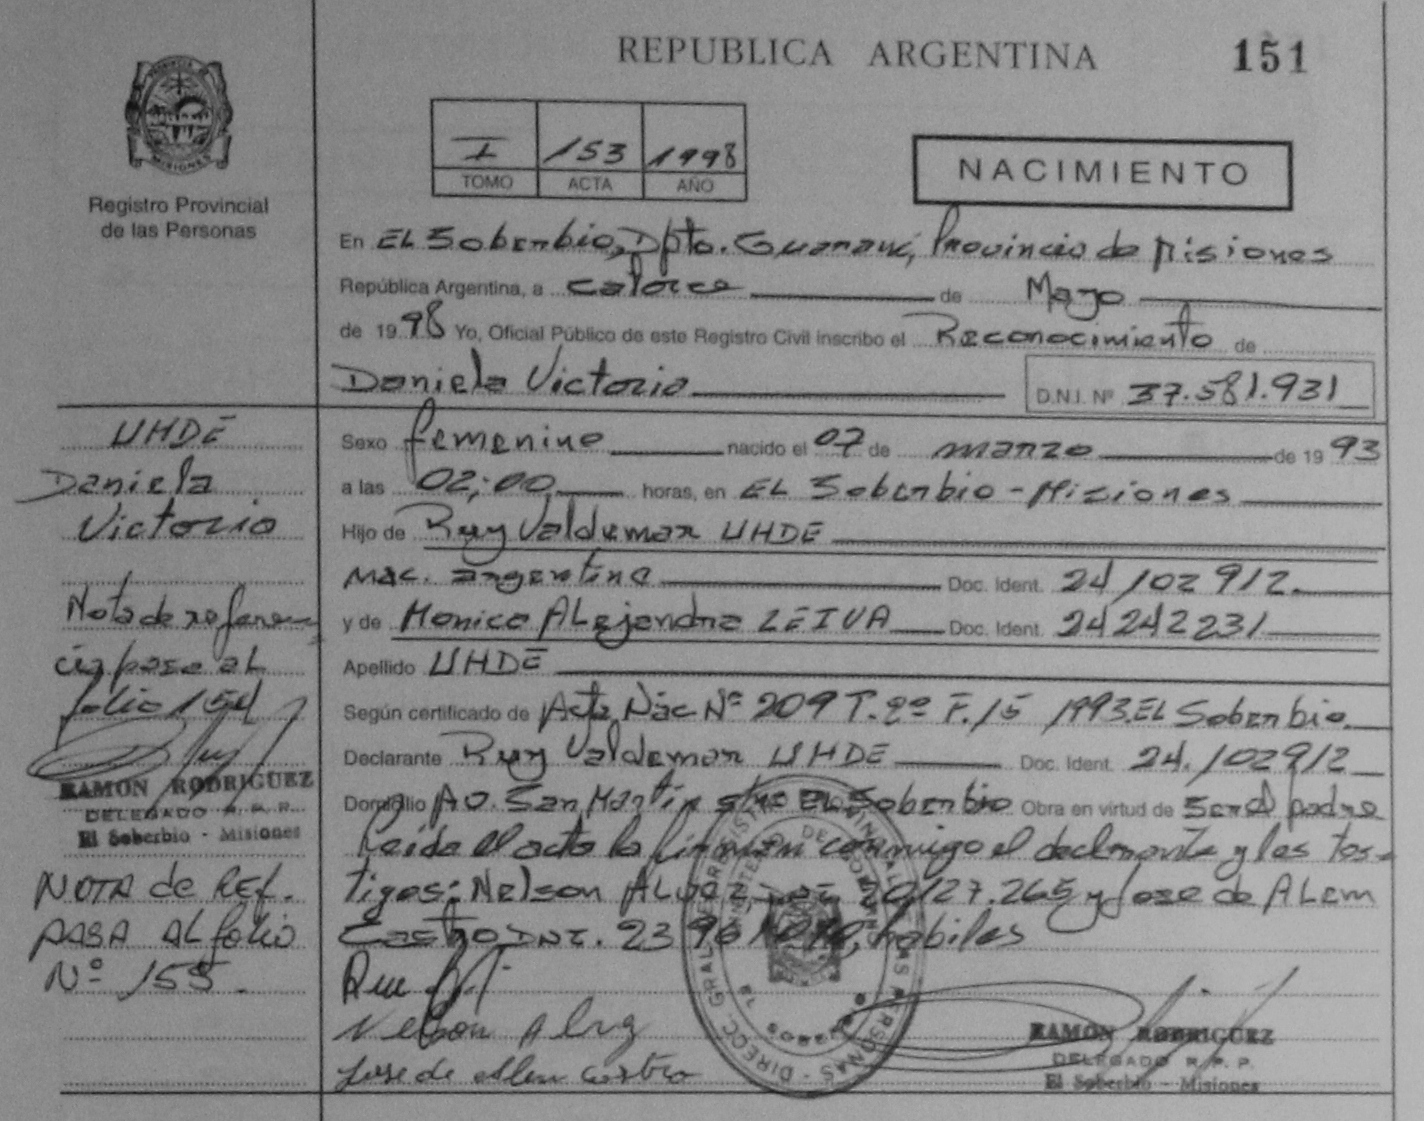 REPUBLICA ARGENTINA 151
PROVINCIA DE MISIONES
Registro Provincial
de las Personas
I 153 1998
TOMO ACTA AÑO
NACIMIENTO
En EL Soberbio, Dpto. Guarani, Provincia de Misiones
República Argentina, a catorce de Mayo
de 1998 Yo, Oficial Público de este Registro Civil inscribo el Reconocimiento de
Daniela Victoria D.N.I. Nº 37.581.931
UHDE
Daniela
Victoria
Sexo femenino nacido el 07 de marzo de 1993
a las 02:00 horas, en EL Soberbio - Misiones
Hijo de Ruy Valdemar UHDE
Nac. argentina Doc. Ident. 24102912
y de Monica ALejandra LEIVA Doc. Ident. 24242231
Apellido UHDE
Según certificado de Acta Nac Nº 209 T.2º F.15 1993 EL Soberbio
Declarante Ruy Valdemar UHDE Doc. Ident. 24.102912
Domicilio AV. San Martin EL Soberbio Obra en virtud de Ser el padre
Leida el acta la firman conmigo el declarante y los tes-
tigos: Nelson 20127.265 y Jose de ALem
Castro DNI. 23 habiles
Nota de referen
cia pase al
folio 154
RAMON RODRIGUEZ
DELEGADO R. P. P.
El Soberbio - Misiones
NOTA de REF.
PASA AL folio
Nº 155.
Nelson
Jose de Alem Castro
RAMON RODRIGUEZ
DELEGADO R. P. P.
El Soberbio - Misiones